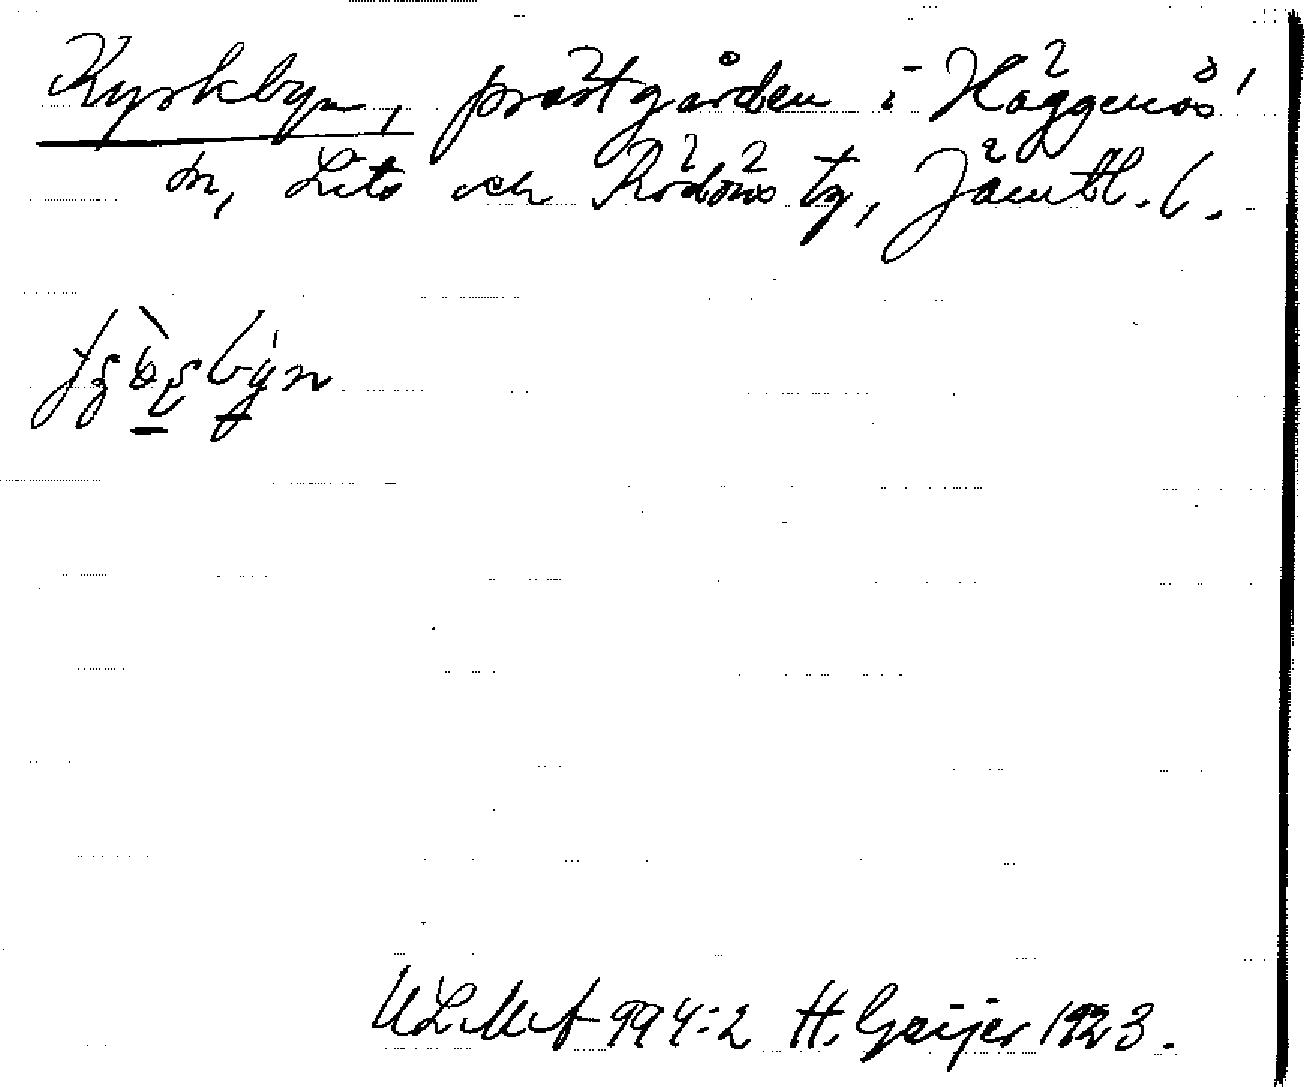 Kyrkbyn, prästgården i Häggenås'
sn, Lits och Rödöns tg, Jämtl. l.
ULMA 994:2 H. Geijer 1923.